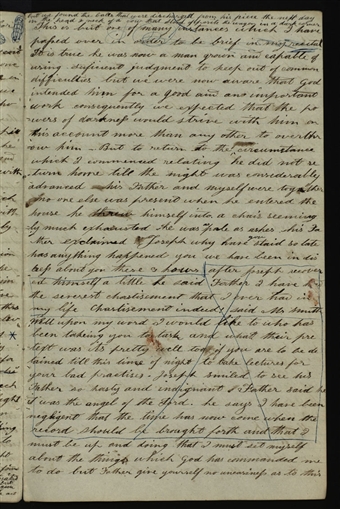 but we found the balls that were discharged from his piece the next day
in the head & neck of a cow that stood opposite the wagon in a dark corner
This is but one of many instances which I have
passed over in order to be brief in my recital
It is true he was now a man grown and capable of
using sufficient judgment to keep out of common
difficulties but we were now aware that God
intended him for a good an and important
work consequently we expected that the po
wers of darkness would strive with him on
this account more than any other to overthr
ow him — But to return to the circumstance
which I commenced relating he did not re
turn home till the night was considerably
advanced his Father and myself were together
no one else was present when he entered the
house he threw himself into a chair seeming
ly much exhausted he was pale as ashes his Fa
ther exclaimed Joseph why have you staid so late
has anything happened you we have been in dis
tress about you these 3 hours after Joseph recover
ed himself a little he said Father I have had
the severest chastisement that I ever had in
my life Chastisement indeed said Mr Smith
Well upon my word I would like to who has
been taking you to task and what their pre
text was its pretty well too if you are to be de
tained till this time of night to take lectures for
your bad practises Joseph smiled to see his
Father so hasty and indignant Father said he
it was the angel of the Lord he says I have been
negligent that the time has now come when the
record should be brought forth and that I
must be up and doing that I must set myself
about the things which God has commanded me
to do but Father give yourself no uneasiness as to this